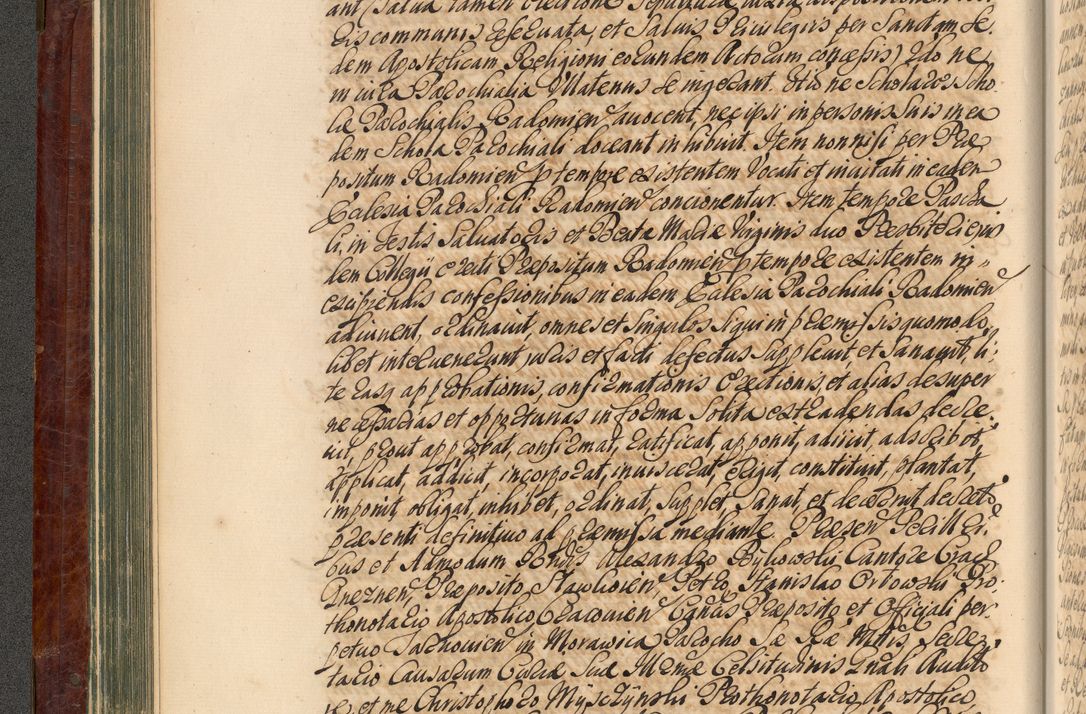 ant, Salva tamen electione Sepulturæ juxta dispositionem
cis communis observata, et Salvis Privilegiis per Sanctam Se-
dem Apostolicam Religioni eorundem Actorum concessis) Quo ne
in jura Parochialia Matenus se ingerant. Utq ne Scholares Scho-
læ Parochialis Radomien avocent, nec ipsi in personis suis in ea
dem Schola Parochiali doceant inhibuit. Item non nisi per Præ
positum Radomien p tempore existentem Vocati et invitati in eadem
Ecclesia Parochiali Radomien concionentur. Item tempore Pascha
li, in Festis Salvatoris et Beatæ Mariæ Virginis duo Presbiteri ejus
dem Collegii erecti Præpositum Radomien p tempore existentem in
excipiendis confessionibus in eadem Ecclesia Parochiali Radomien
adjuvent, ordinavit, omnes et Singulos Siqui in præmissis quomodo
libet intervenerunt juris et facti defectus Supplevit et Sanavit, li-
teras q approbationis, confirmationis Erectionis, et alias desuper
necessarias et opportunas in forma Solita extradendas decre-
vit, prout approbat, confirmat, ratificat, apponit, adjicit, adscribit
applicat, addicit, incorporat, inviscerat, Erigit, constituit, plantat,
imponit obligat, inhibet, ordinat, Supplet, Sanat, et decernit decreto
præsenti definitivo ad præmissa mediante. Præsen Perill Ri-
bus et Admodum Rndis Alexandro Bylowski Cantore Crac
Gneznen Præposito Stawiscien, Petro Stanislao Orlowski Pro-
thonotario Apostolico Cracovien Candis Præposito et Officiali per
petuo Tarnovien in Morawica Parocho Sæ Ræ Mttis Secre-
tario Causarum Curiæ Suæ Memæ Celsitudinis Gnali Audito
re, et me Christophoro Myszzynski Prothonotario Apostolico